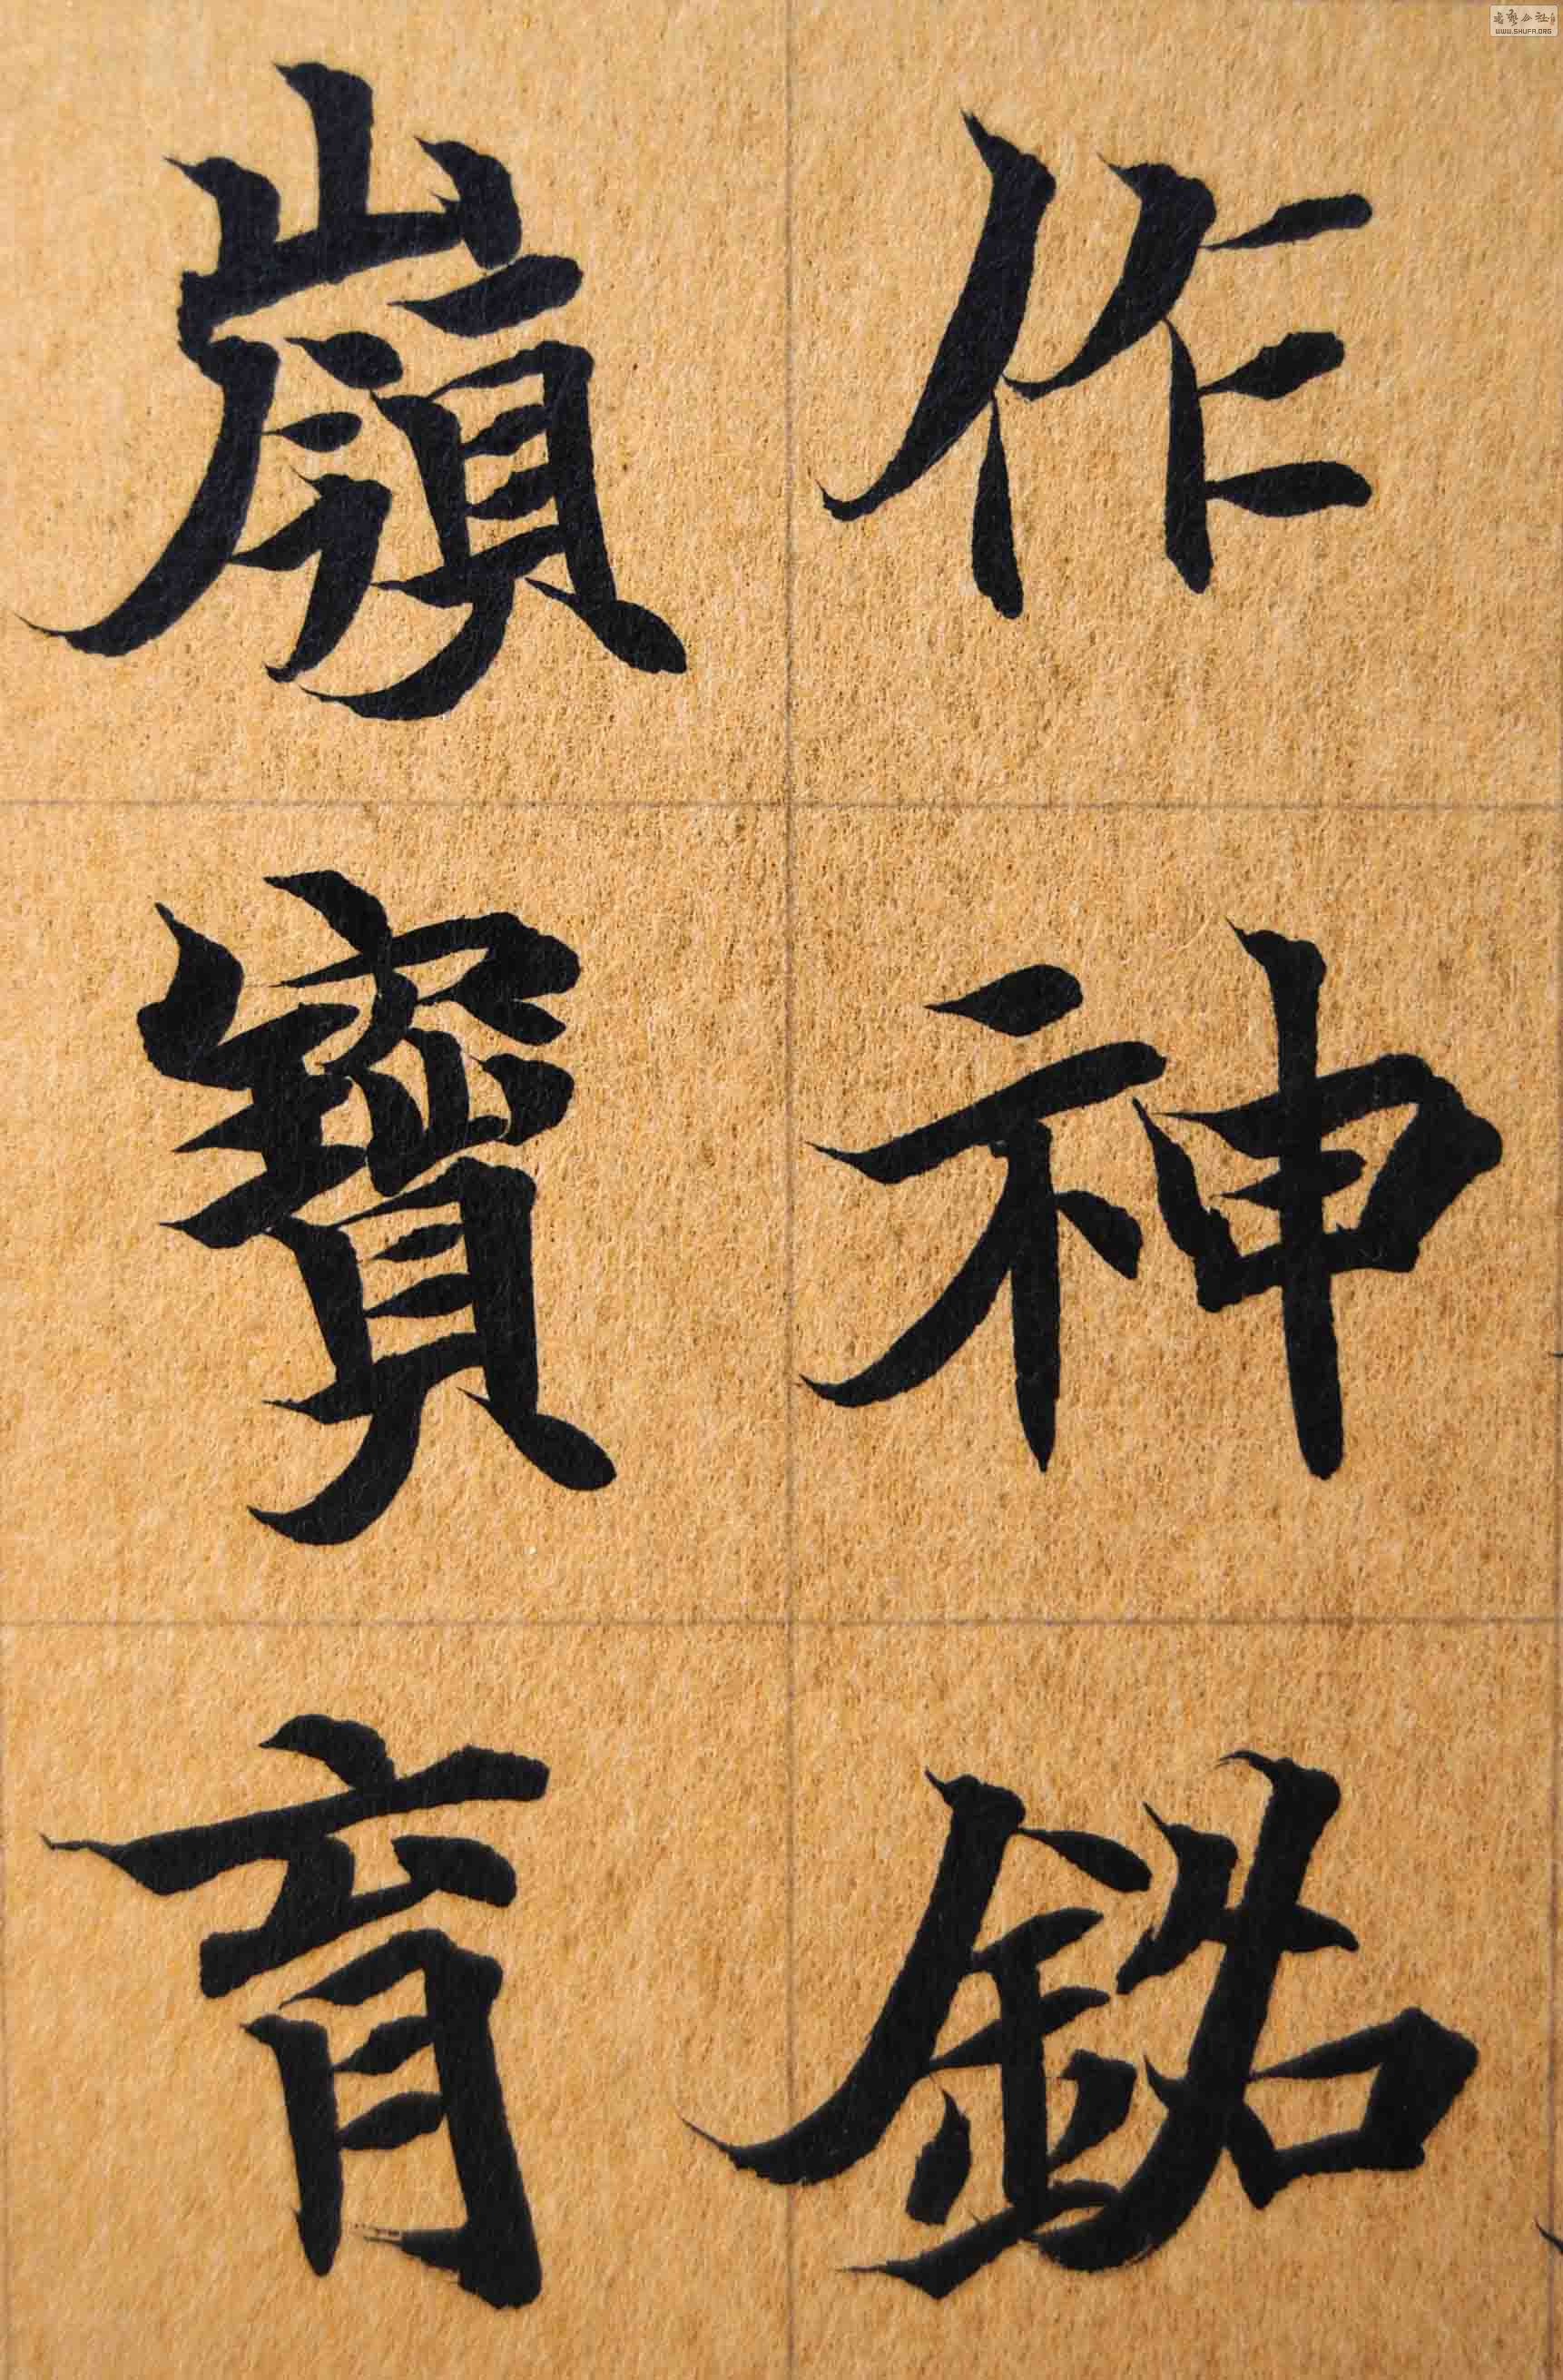 作神
嶺寶育
书艺公社
WWW.SHUFA.ORG